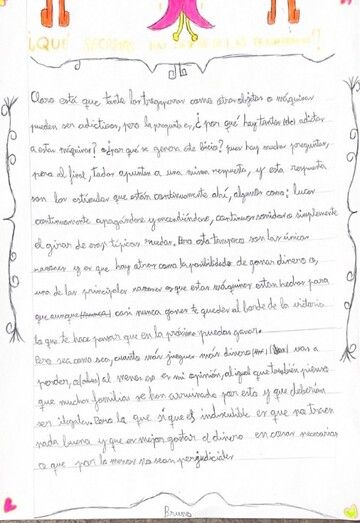 ¿QUÉ SECRETOS HAY DETRÁS DE LAS TRAGAPERRAS?
Claro está que tanto las tragaperras como otros objetos o máquinas
pueden ser adictivas, pero la pregunta es, ¿por qué hay tantos adictos
a estas máquinas? o ¿por qué se genera este vicio? pues hay muchas preguntas,
pero al final, todas apuntan a una misma respuesta, y esta respuesta
son los estímulos que están continuamente ahí, algunos como: luces
continuamente apagándose y encendiéndose, continuos sonidos o simplemente
el girar de esas típicas ruedas. Pero estas tampoco son las únicas
razones y es que hay otras como la posibilidad de ganar dinero o,
una de las principales razones es que estas máquinas están hechas para
que aunque casi nunca ganes te quedes al borde de la victoria
lo que te hace pensar que en la próxima puedas ganar.
Pero sea como sea, cuanto más juegues más dinero vas a
perder, al menos es mi opinión, al igual que también pienso
que muchas familias se han arruinado por esto y que deberían
ser ilegales. Pero lo que sí que es indudable es que no traen
nada bueno y que es mejor gastar el dinero en cosas necesarias
o que por lo menos no sean perjudiciales
Bruno